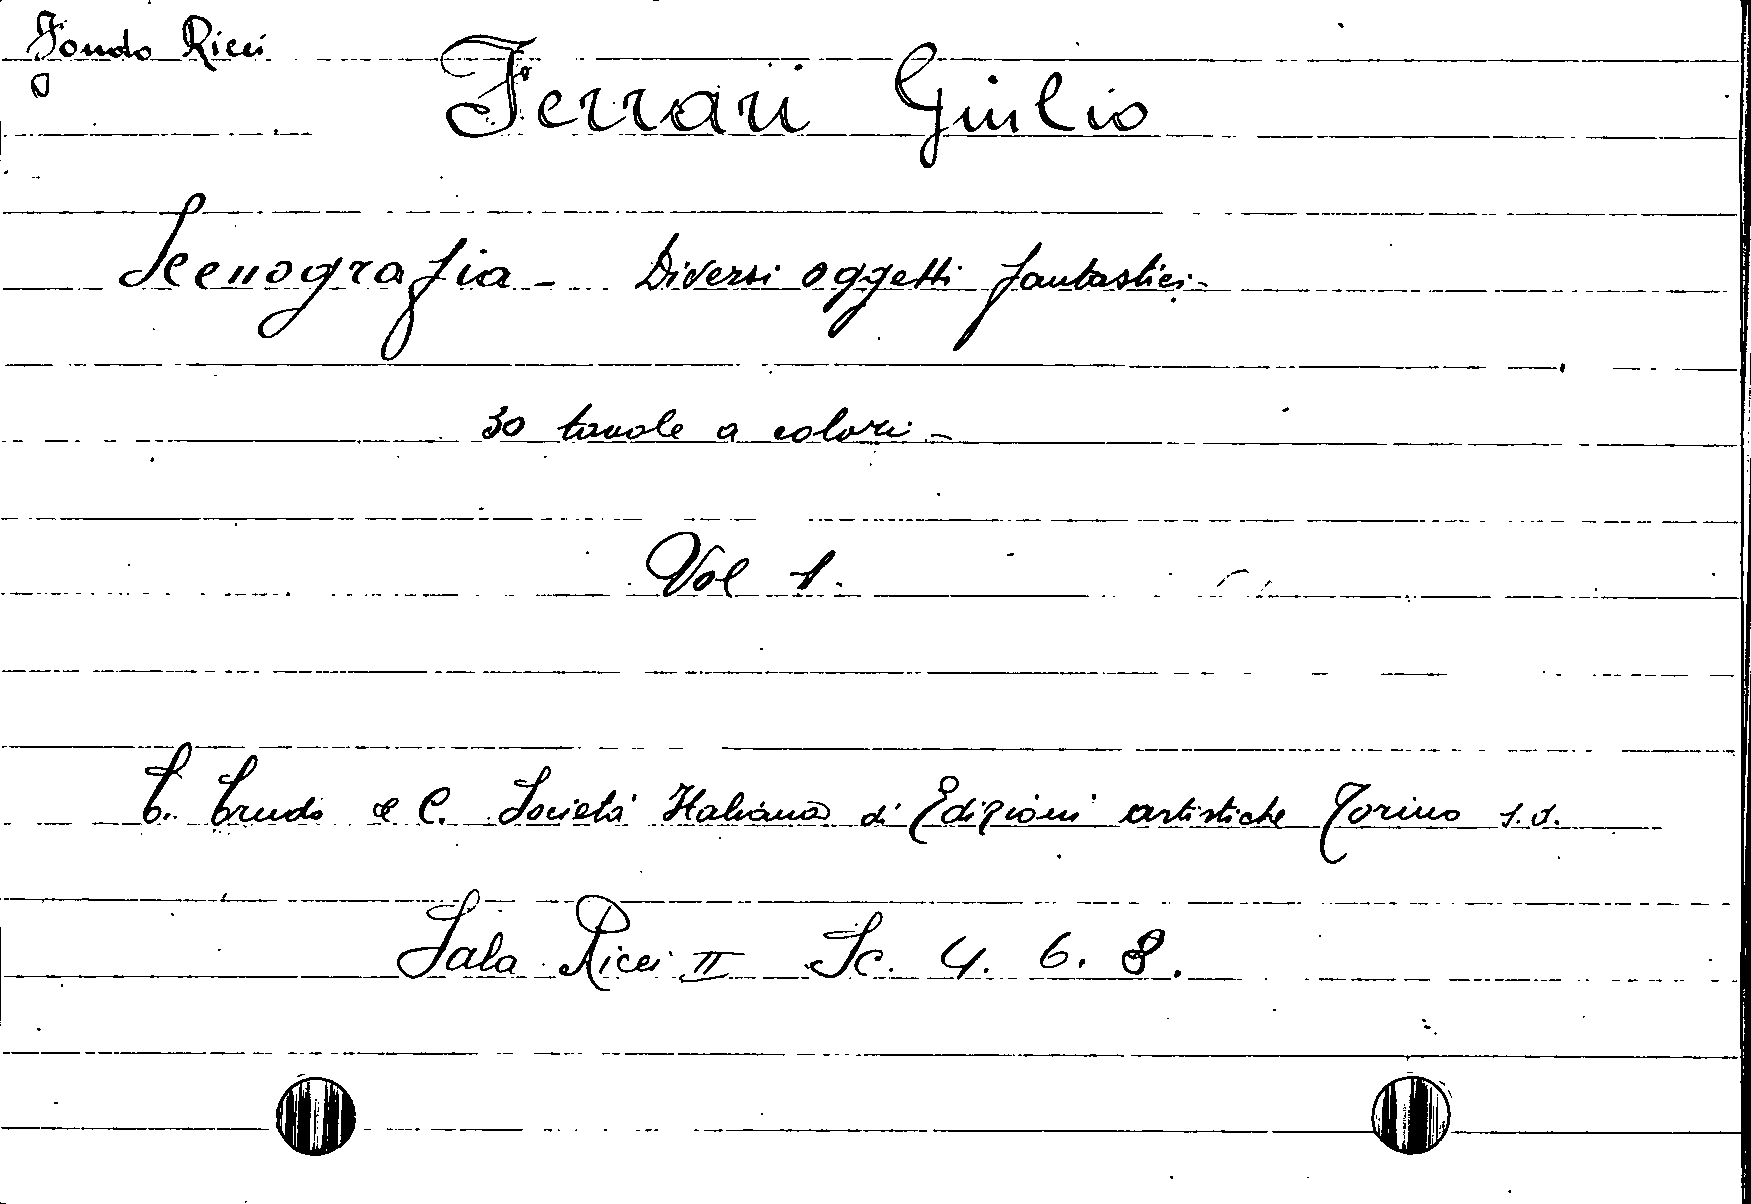 Fondo Ricci
Ferrari Giulio
Scenografia - Diversi oggetti fantastici -
30 tavole a colori -
Vol 1.
C. Crudo e C. Società Italiana di Edizioni artistiche Torino s.d.
Sala Ricci II Sc. 4. 6. 8.